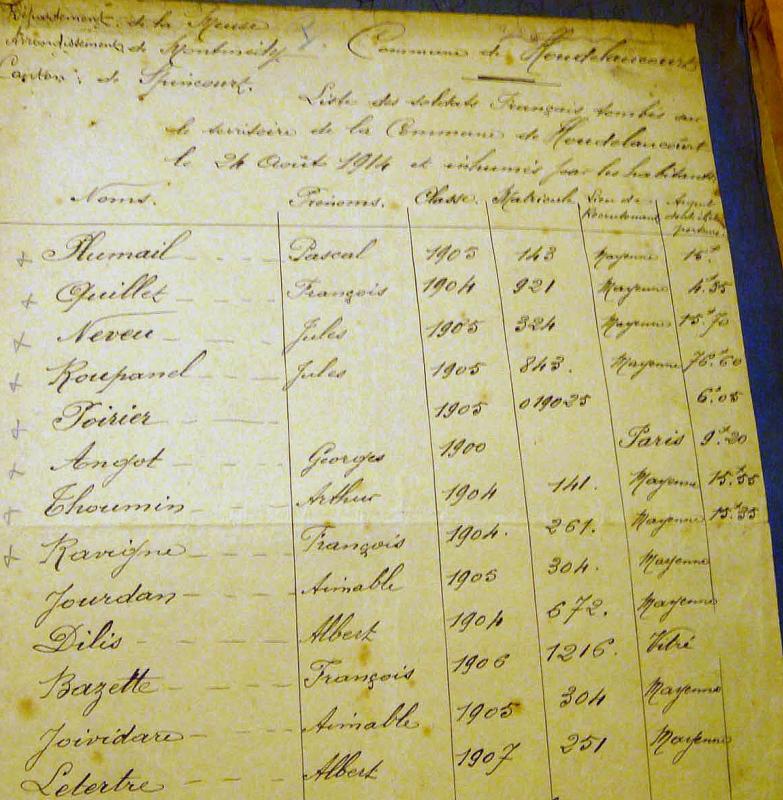 Département de la Meuse
Arrondissement de Montmédy
Canton de Spincourt.
Commune de Houdelaucourt
Liste des soldats Français tombés sur
le territoire de la Commune de Houdelaucourt
le 24 Août 1914 et inhumés par les habitants
Noms. Prénoms. Classe. Matricule Lieu de Recrutement Argent
Plumail Pascal 1905 143 Mayenne 15f.
Quillet François 1904 921 Mayenne 4f55
Neveu Jules 1905 324 Mayenne 15f70
Roupanel Jules 1905 843. Mayenne 76f60
Poirier 1905 019025 6f05
Angot Georges 1900 Paris 9f20
Thoumin Arthur 1904 141. Mayenne 15f55
Ravigné François 1904. 261. Mayenne 15f35
Jourdan Aimable 1905 304. Mayenne
Dilis Albert 1904 672. Mayenne
Bazette François 1906 1216. Vitré
Joividare Aimable 1905 304 Mayenne
Letertre Albert 1907 251 Mayenne